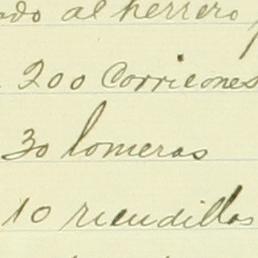 ado al herrero
200 Correones
30 lomeras
10 riendillas